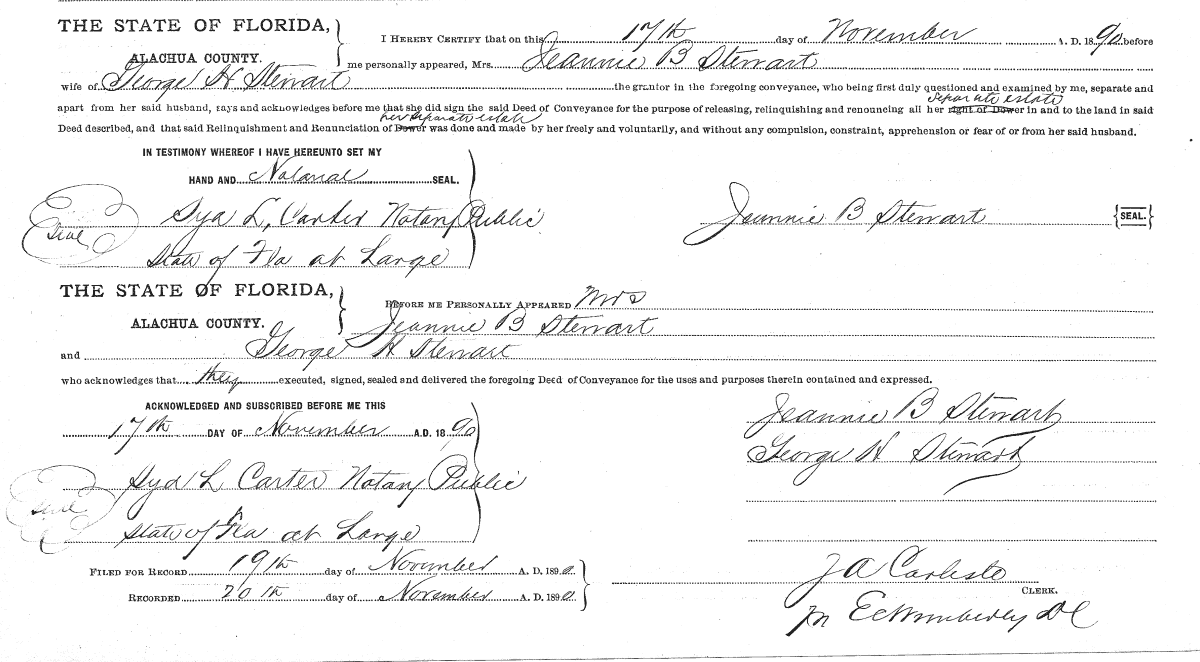 THE STATE OF FLORIDA,
ALACHUA COUNTY.
I HEREBY CERTIFY that on this 17th day of November A. D. 1890 before
me personally appeared, Mrs. Jeannie B Stewart
wife of George H Stewart the grantor in the foregoing conveyance, who being first duly questioned and examined by me, separate and
separate estate
apart from her said husband, says and acknowledges before me that she did sign the said Deed of Conveyance for the purpose of releasing, relinquishing and renouncing all her right of Dower in and to the land in said
her separate estate
Deed described, and that said Relinquishment and Renunciation of Dower was done and made by her freely and voluntarily, and without any compulsion, constraint, apprehension or fear of or from her said husband.
IN TESTIMONY WHEREOF I HAVE HEREUNTO SET MY
HAND AND Notarial SEAL.
Syd L, Carter Notary Public
Seal
Jeannie B Stewart {SEAL.}
State of Fla at Large
THE STATE OF FLORIDA,
ALACHUA COUNTY.
BEFORE ME PERSONALLY APPEARED Mrs
Jeannie B Stewart
and George H Stewart
who acknowledges that they executed, signed, sealed and delivered the foregoing Deed of Conveyance for the uses and purposes therein contained and expressed.
ACKNOWLEDGED AND SUBSCRIBED BEFORE ME THIS
17th DAY OF November A.D. 1890
Jeannie B Stewart
George H Stewart
Syd L Carter Notary Public
Seal
State of Fla at Large
FILED FOR RECORD 19th day of November A. D. 1890.
RECORDED 20th day of November A. D. 1890
J A Carlisle
CLERK.
EC Wimberly DC